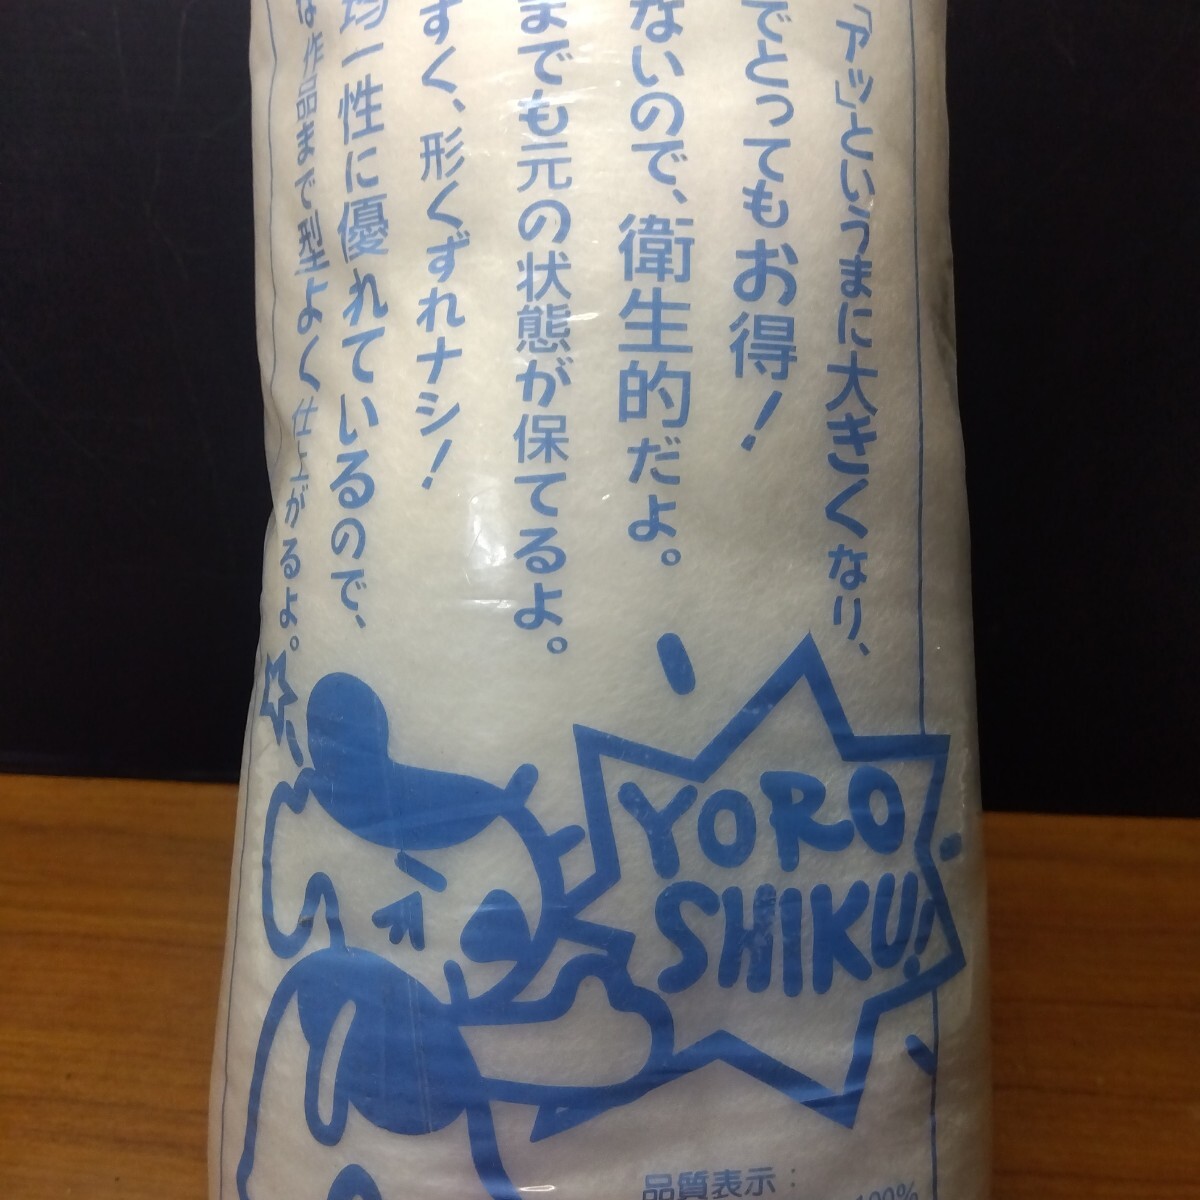 「アッ」というまに大きくなり、
でとってもお得!
ないので、衛生的だよ。
までも元の状態が保てるよ。
すく、形くずれナシ!
均一性に優れているので、
な作品まで型よく仕上がるよ。
YORO
SHIKU!
品質表示:
100%